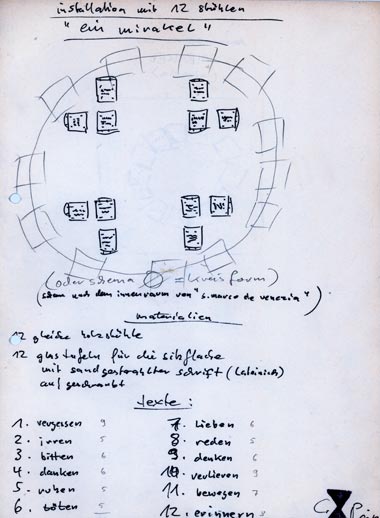 installation mit 12 stühlen
"ein mirakel"
(oder schema = kreisform)
(schema nach dem innenraum von "s. marco de venezia")
materialien
12 gleiche holzstühle
12 glastafeln für die sitzfläche
mit sandgestrahlter schrift (lateinisch)
aufgeschraubt
texte:
1. vergessen 9
2. irren 5
3. bitten 6
4. danken 6
5. ruhen 5
6. töten 5
7. lieben 6
8. reden 5
9. denken 6
10. verlieren 9
11. bewegen 7
12. erinnern